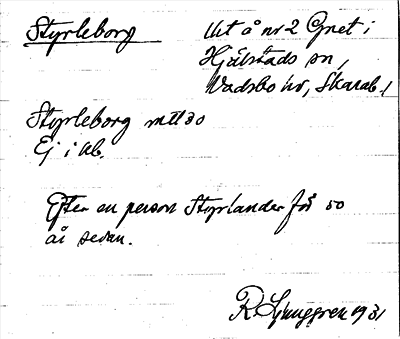 Styrleborg
Urt å nr 2 Gnet i
Hjälstads sn,
Vadsbo hd, Skarab. l
Styrleborg mtl 30
Ej i kb.
Efter en person Styrlander för 50
år sedan.
R. Ljunggren 1931